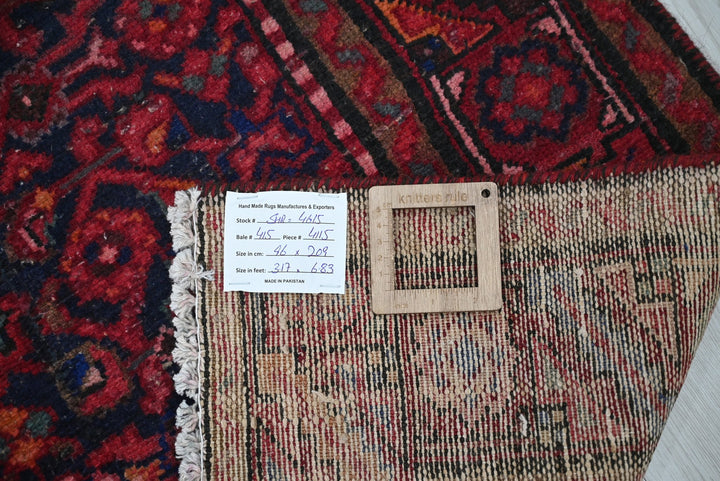 Hand Made Rugs Manufactures & Exporters
Stock # 4615
Bale # 415 Piece # 4115
Size in cm: 96 x 209
Size in feet: 3.17 x 6.83
MADE IN PAKISTAN
knitters rule